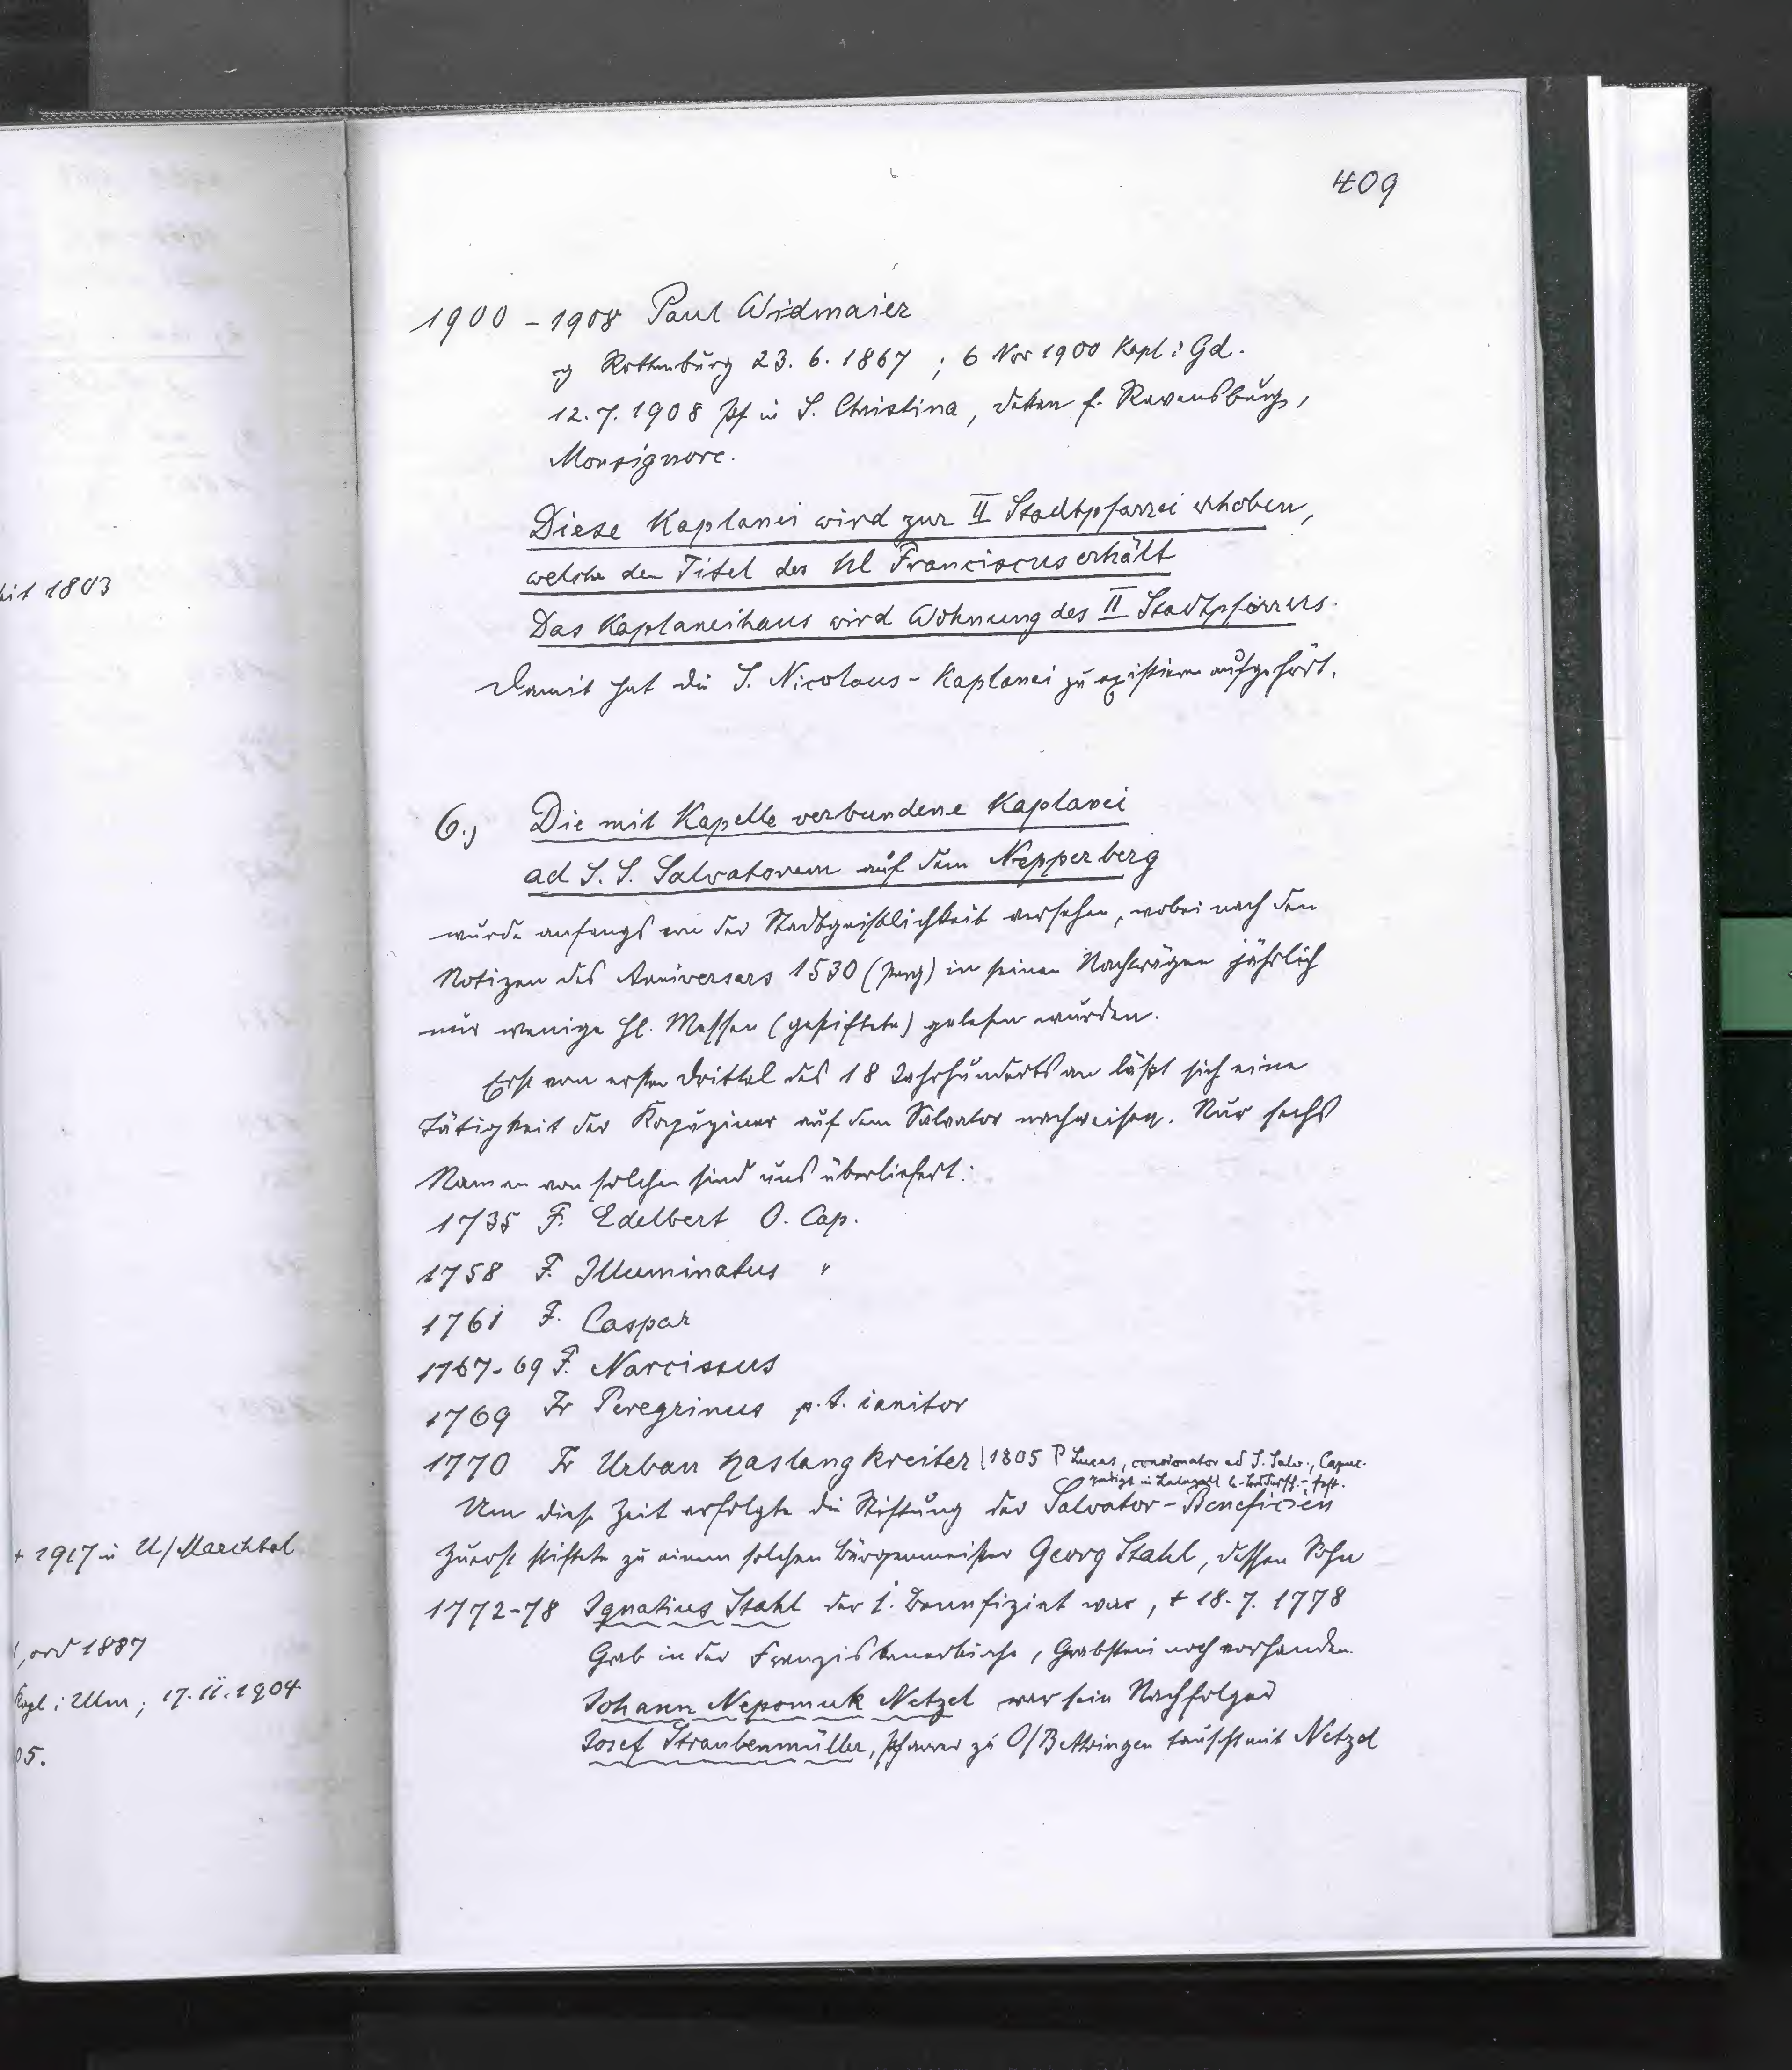 409
1900 - 1908 Paul Widmaier
g Rottenburg 23. 6. 1867 ; 6 Nov 1900 Kapl i Gd.
12. 7. 1908 Pf in S. Christina, dekan f. Ravensburg,
Monsignore.
Diese Kaplanei wird zur II Stadtpfarrei erhoben,
welche den Titel des hl Franciscus erhält
Das Kaplaneihaus wird Wohnung des II Stadtpfarrers.
Damit hat die S. Nicolaus - Kaplanei zu existieren aufgehört.
6.) Die mit Kapelle verbundene Kaplanei
ad S. S. Salvatorem auf dem Nepperberg
wurde anfangs von der Stadtgeistlichkeit versehen, wobei nach den
Notizen des Anniversars 1530 (perg) in seinen Nachträgen jährlich
nur wenige hl. Messen (gestiftete) gelesen wurden.
Erst vom ersten Drittel des 18 Jahrhunderts an läßt sich eine
Tätigkeit der Kapuziner auf dem Salvator nachweisen. Nur sechs
Namen von solchen sind uns überliefert:
1735 F. Edelbert O. Cap.
1758 F. Illuminatus "
1761 F. Caspar
1767-69 F. Narcissus
1769 Fr Peregrinus p. t. ianitor
1770 Fr Urban Haslangkreiter | 1805 P Lucas, concionator ad S. Salv., Capuc.
predigt in
Um diese Zeit erfolgte die Stiftung der Salvator-Beneficien
Zuerst stiftete zu einem solchen Bürgermeister Georg Stahl, dessen Sohn
1772-78 Ignatius Stahl der 1. Benefiziat war, + 18. 7. 1778
Grab in der Franziskanerkirche, Grabstein noch vorhanden.
Johann Nepomuk Netzel war sein Nachfolger
Josef Straubenmüller, Pfarrer zu O/Bettringen tauscht mit Netzel
eit 1803
+ 1917 in U/Marchtal
, ord 1887
Kapl i Ulm ; 17. 11. 1904
05.